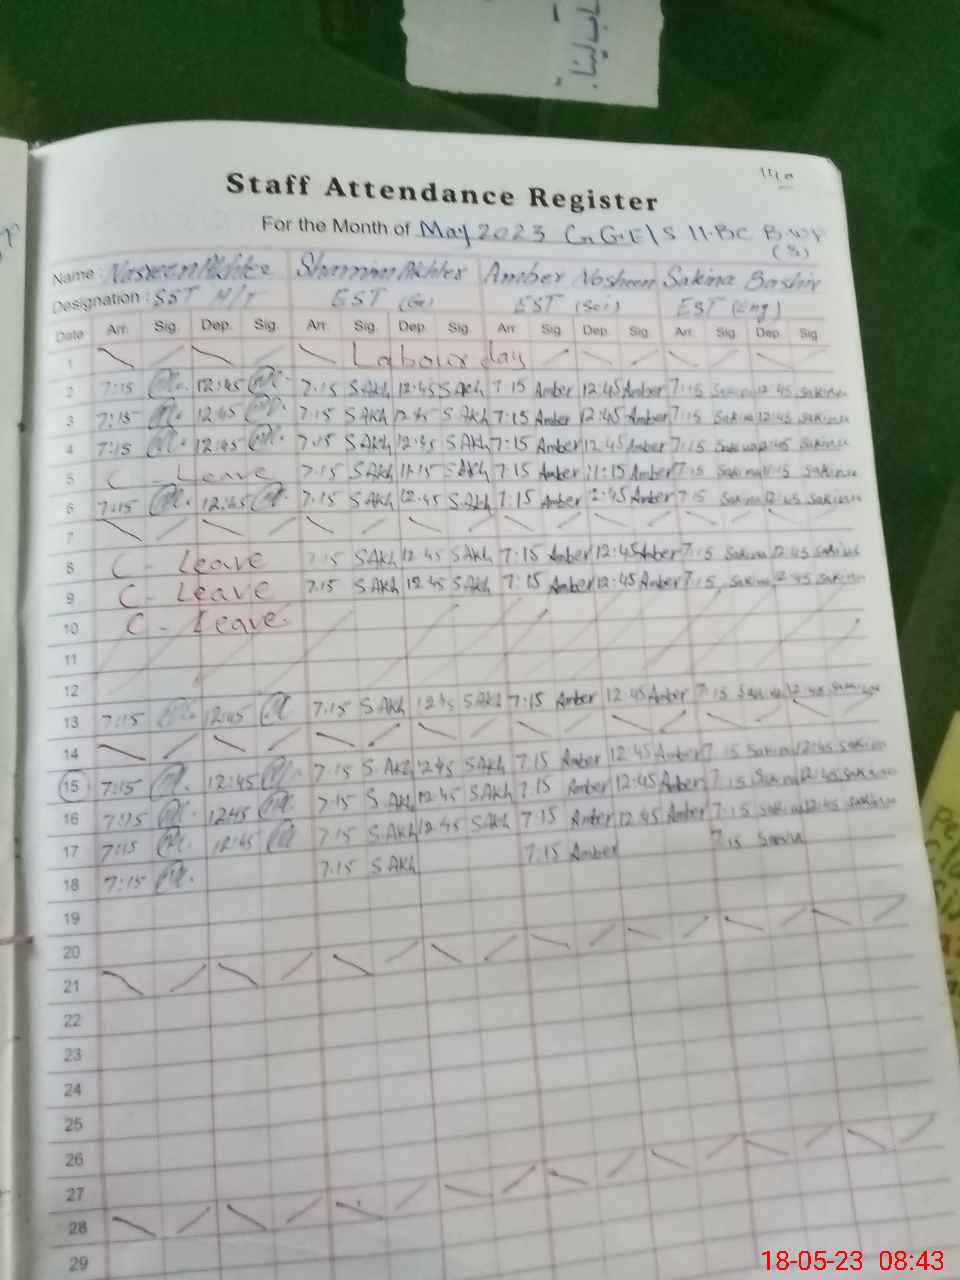 تاب لینا
Staff Attendance Register
For the Month of May 2023 G.G.E/S 11.BC B.WP
(3)
Name: Nasreen Akhter Shamim Akhter Amber Nosheen Sakina Bashir
Designation: SST H/T EST (G) EST (Sci) EST (Eng)
Date Arr. Sig. Dep. Sig. Arr. Sig. Dep. Sig. Arr. Sig. Dep. Sig. Arr. Sig. Dep. Sig.
1 Labour day
2 7:15 12:45 7.15 SAkh 12:45 SAkh 7:15 Amber 12:45 Amber 7:15 Sakina 12:45 Sakina
3 7:15 12:45 7:15 SAkh 12:45 SAkh 7:15 Amber 12:45 Amber 7:15 Sakina 12:45 Sakina
4 7:15 12:45 7:15 SAkh 12:45 SAkh 7:15 Amber 12:45 Amber 7:15 Sakina 12:45 Sakina
5 C - Leave 7:15 SAkh 11:15 SAkh 7:15 Amber 11:15 Amber 7:15 Sakina 11:15 Sakina
6 7:15 12:45 7.15 SAkh 12:45 SAkh 7:15 Amber 12:45 Amber 7:15 Sakina 12:45 Sakina
7
8 C - Leave 7:15 SAkh 12:45 SAkh 7:15 Amber 12:45 Amber 7:15 Sakina 12:45 Sakina
9 C - Leave 7.15 SAkh 12:45 SAkh 7:15 Amber 12:45 Amber 7:15 Sakina 12:45 Sakina
10 C - Leave
11
12
13 7:15 12:45 7.15 SAkh 12:45 SAkh 7:15 Amber 12:45 Amber 7:15 Sakina 12:45 Sakina
14
15 7:15 12:45 7.15 SAkh 12:45 SAkh 7:15 Amber 12:45 Amber 7:15 Sakina 12:45 Sakina
16 7:15 12:45 7.15 SAkh 12:45 SAkh 7.15 Amber 12:45 Amber 7:15 Sakina 12:45 Sakina
17 7:15 12:45 7.15 SAkh 12:45 SAkh 7:15 Amber 12:45 Amber 7:15 Sakina 12:45 Sakina
18 7:15 7.15 SAkh 7:15 Amber 7:15 Sakina
19
20
21
22
23
24
25
26
27
28
29
18-05-23 08:43